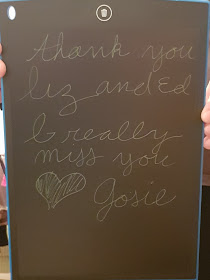 thank you
Liz and Ed
I really
miss you
Josie